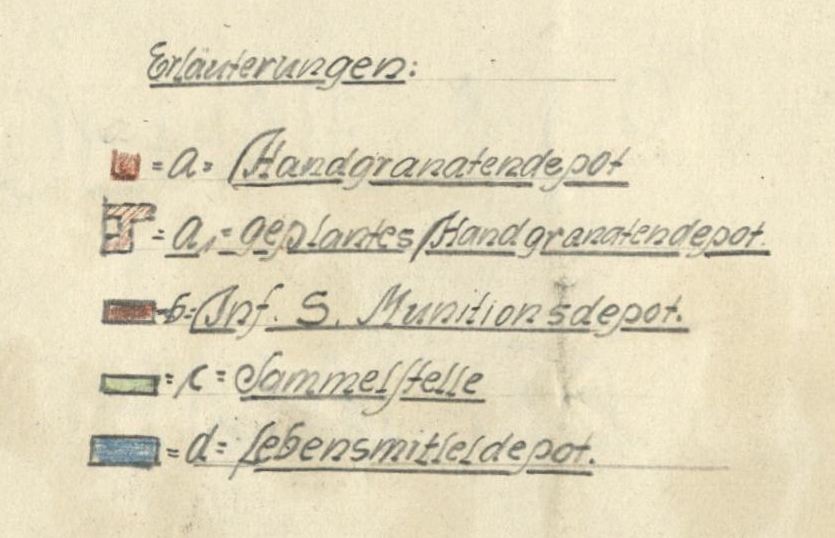 Erläuterungen:
= a = Handgranatendepot
= a₁ = geplantes Handgranatendepot.
= b = Inf. S. Munitionsdepot.
= c = Sammelstelle
= d = Lebensmitteldepot.